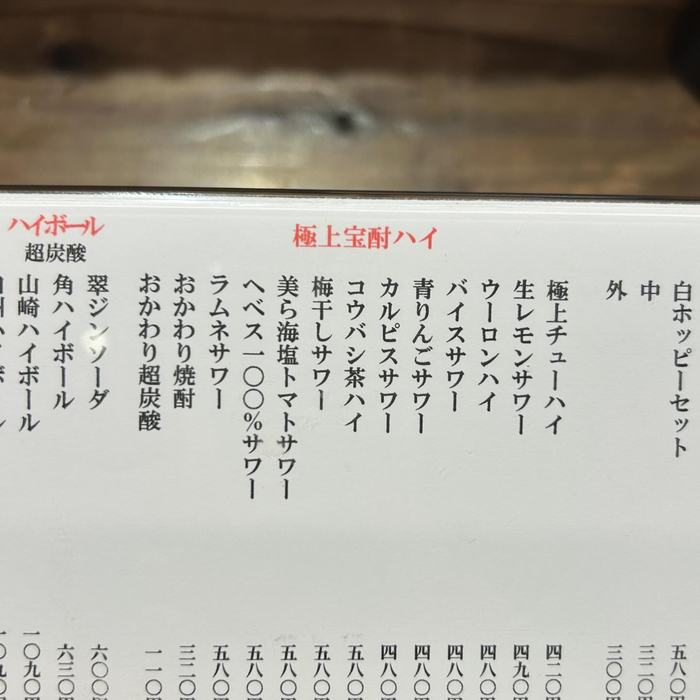 白ホッピーセット 五八〇
中 三二〇
外 三〇〇
極上宝酎ハイ
極上チューハイ 四二〇
生レモンサワー 四九〇
ウーロンハイ 四八〇
バイスサワー 四八〇
青りんごサワー 四八〇
カルピスサワー 四八〇
コウバシ茶ハイ 五八〇
梅干しサワー 五八〇
美ら海塩トマトサワー 五八〇
ヘベス一〇〇%サワー 五八〇
ラムネサワー 五八〇
おかわり焼酎 三二〇
おかわり超炭酸 一一〇
ハイボール
超炭酸
翠ジンソーダ 六〇〇
角ハイボール 六三〇
山崎ハイボール 一〇九〇